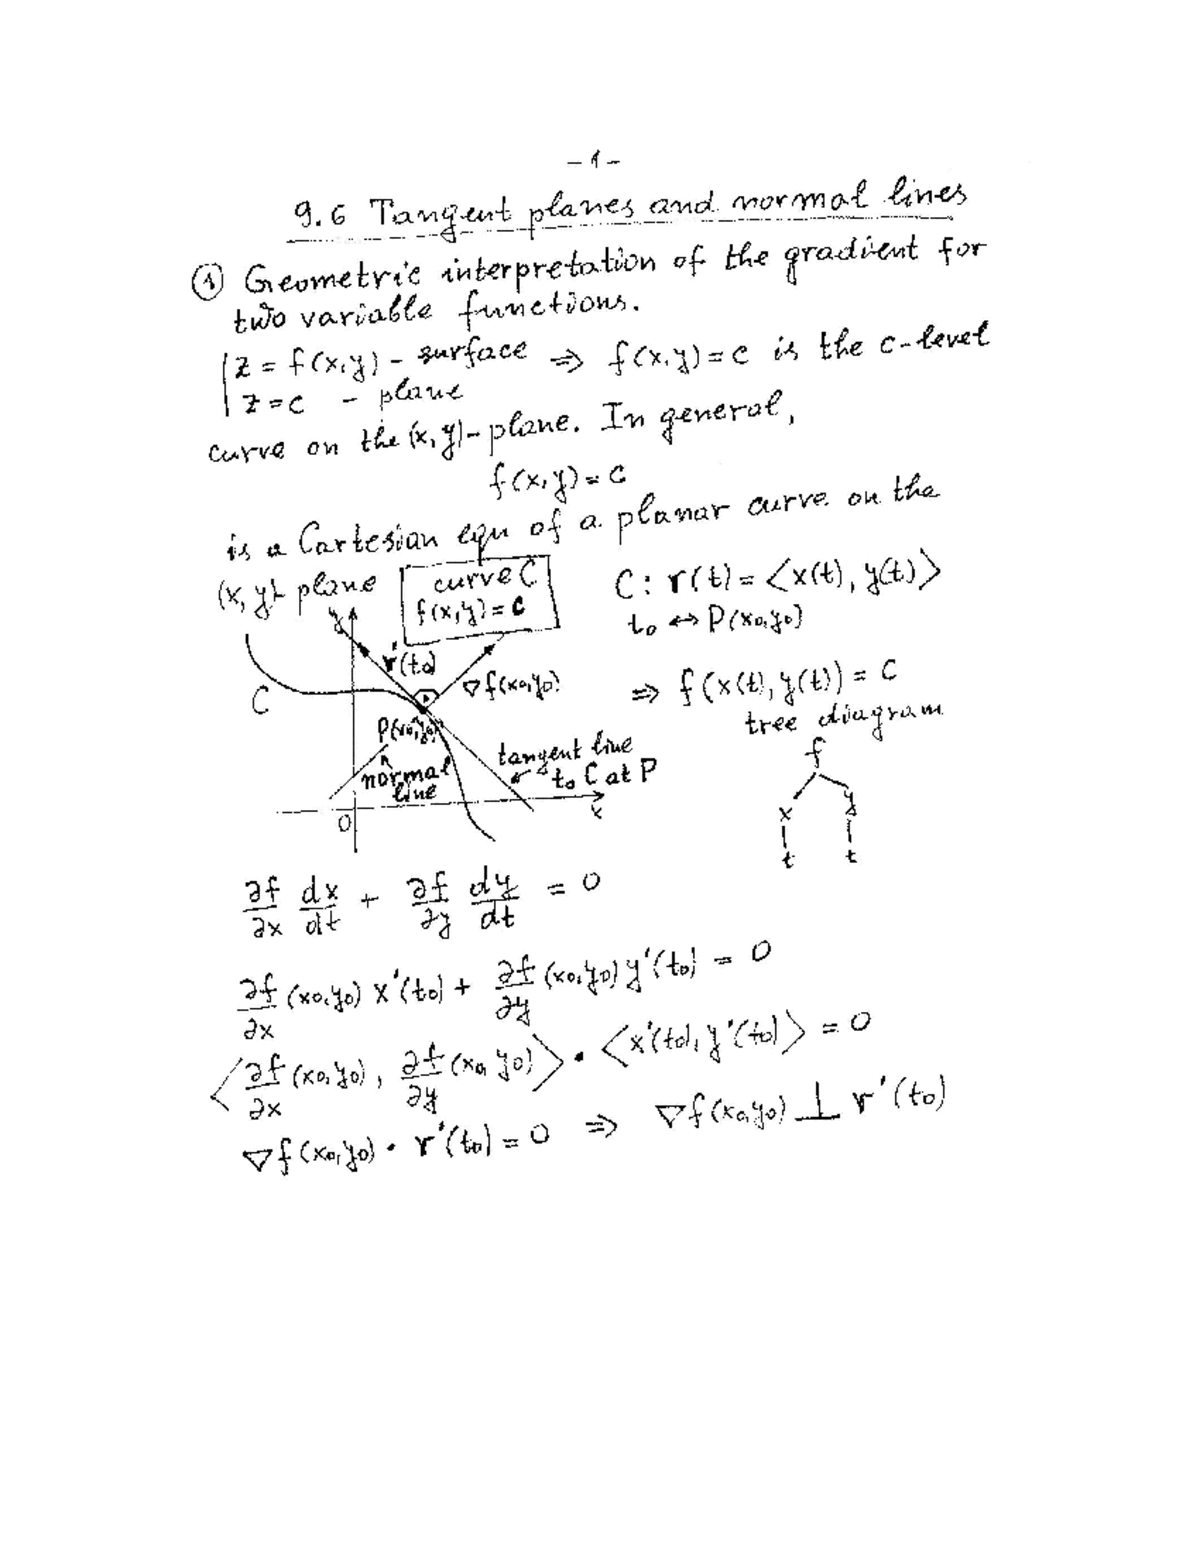 - 1 -
9.6 Tangent planes and normal lines
① Geometric interpretation of the gradient for
two variable functions.
z = f(x,y) - surface ⇒ f(x,y) = c is the c-level
z = c - plane
curve on the (x,y)-plane. In general,
f(x,y) = c
is a Cartesian equ of a planar curve on the
(x,y)-plane
curve C
f(x,y) = c
C: r(t) = ⟨x(t), y(t)⟩
t₀ ↔ P(x₀,y₀)
y
r'(t₀)
∇f(x₀,y₀)
⇒ f(x(t), y(t)) = C
C
tree diagram
P(x₀,y₀)
f
normal
line
tangent line
to C at P
x y
O
x
t t
∂f/∂x dx/dt + ∂f/∂y dy/dt = 0
∂f/∂x (x₀,y₀) x'(t₀) + ∂f/∂y (x₀,y₀) y'(t₀) = 0
⟨∂f/∂x (x₀,y₀), ∂f/∂y (x₀,y₀)⟩ • ⟨x'(t₀), y'(t₀)⟩ = 0
∇f(x₀,y₀) • r'(t₀) = 0 ⇒ ∇f(x₀,y₀) ⊥ r'(t₀)